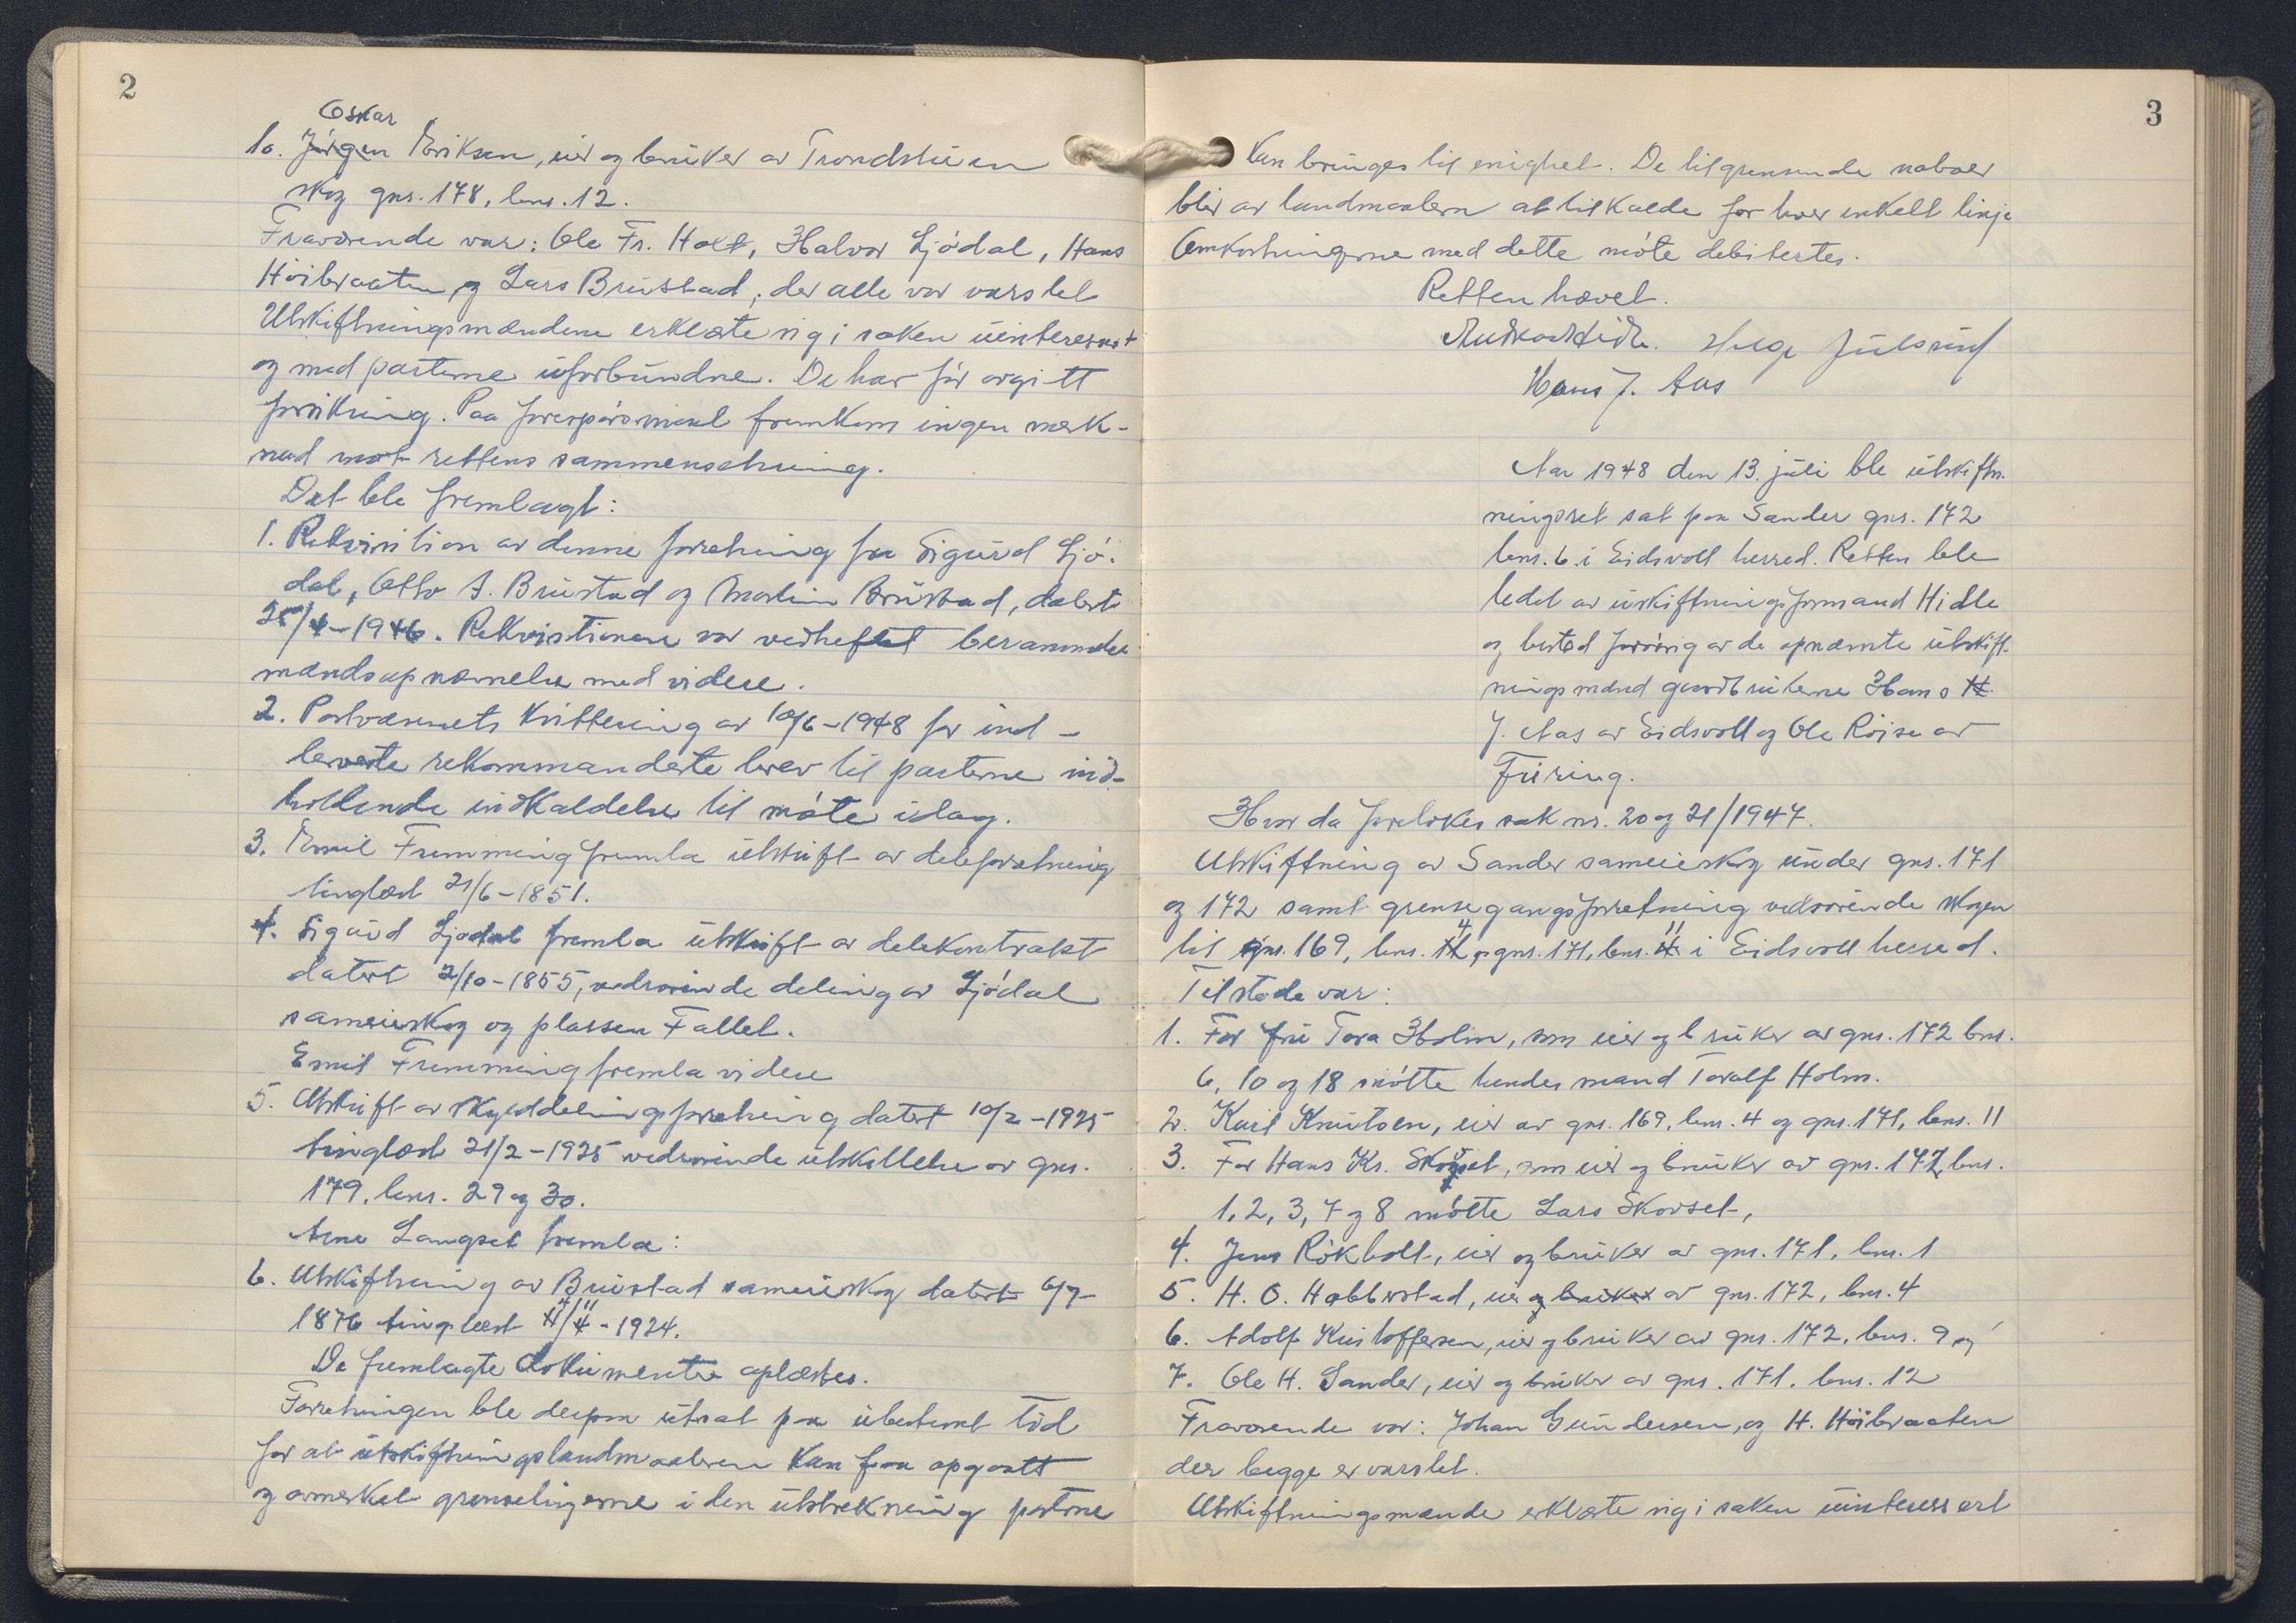 2
Oskar
10. Jörgen Eriksen, eier og bruker av Trondstuen
skog gnr. 178, bnr. 12.
Fraværende var: Ole Fr. Holt, Halvor Ljødal, Hans
Höibraaten og Lars Brustad, der alle var varslet
Utskiftningsmændene erklærte sig i saken uinteresert
og med parterne uforbundne. De har før avgitt
forsikring. Paa forespørsmaal fremkom ingen merk-
nad mot rettens sammensetning.
Det ble fremlagt:
1. Rekvisition av denne forretning fra Sigurd Ljö-
dal, Otto A. Brustad og Martin Brustad, datert
25/4-1946. Rekvistionen var vedheftet berammelse
mandsopnævnelse med videre.
2. Postvæsenets kvittering av 10/6-1948 for ind-
leverte rekommanderte brev til parterne ind-
holdende indkaldelse til møte idag.
3. Emil Fremming fremla utskrift av deleforretning
tinglæst 21/6-1851.
4. Sigurd Ljødal fremla utskrift av delekontrakt
datert 2/10-1855, vedrørende deling av Ljødal
sameieskog og plassen Fallet.
Emil Fremming fremla videre
5. Utskrift av skylddelingsforretning datert 10/2-1925
tinglæst 21/2-1925 vedrørende utskillelse av gnr.
179, bnr. 29 og 30.
Arne Langset fremla:
6. Utskiftning av Brustad sameieskog datert 6/7-
1876 tinglæst 4/11-1924.
De fremlagte dokumenter oplæstes.
Forretningen ble derpaa utsat paa ubestemt tid
for at utskiftningslandmaaleren kan faa opgaatt
og avmerket grenselinjerne i den utstrekning parterne
3
kan bringes til enighet. De tilgrensende naboer
blir av landmaaleren at tilkalde for hver enkelt linje
Omkostningerne med dette møte debitertes.
Retten hævet.
Helge Julsrud
Hans J. Aas
Aar 1948 den 13. juli ble utskift-
ningsret sat paa Sander gnr. 172
bnr. 6 i Eidsvoll herred. Retten ble
ledet av utskiftningsformand Hidle
og bestod forøvrig av de opnævnte utskift-
ningsmænd gaardbrukerne Hans H.
J. Aas av Eidsvoll og Ole Röise av
Furing.
Hvor da forelokes sak nr. 20 og 21/1947.
Utskiftning av Sander sameieskog under gnr. 171
og 172 samt grensegangsforretning vedrørende skogen
til gnr. 169, bnr. 4 og gnr. 171, bnr. 11 i Eidsvoll herred.
Tilstede var:
1. For fru Tora Holm, som eier og bruker av gnr. 172 bnr.
6, 10 og 18 møtte hendes mand Toralf Holm.
2. Karl Knutsen, eier av gnr. 169, bnr. 4 og gnr. 171, bnr. 11
3. For Hans Kr. Skovset, som eier og bruker av gnr. 172, bnr.
1, 2, 3, 7 og 8 møtte Lars Skovset,
4. Jens Rökholt, eier og bruker av gnr. 171, bnr. 1
5. H. O. Habberstad, eier og bruker av gnr. 172, bnr. 4
6. Adolf Kristoffersen, eier og bruker av gnr. 172, bnr. 9 og
7. Ole H. Sander, eier og bruker av gnr. 171. bnr. 12
Fraværende var: Johan Gundersen, og H. Höibraaten
der begge er varslet.
Utskiftningsmænde erklærte sig i saken uinteressert